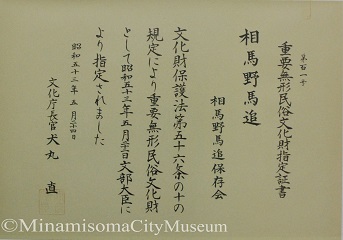 第百一十
重要無形民俗文化財指定証書
相馬野馬追
相馬野馬追保存会
文化財保護法第五十六条の十の
規定により重要無形民俗文化財
として昭和五十三年五月　日文部大臣に
より指定されました
昭和五十三年　五月　日
文化庁長官　犬丸　直
©MinamisomaCityMuseum